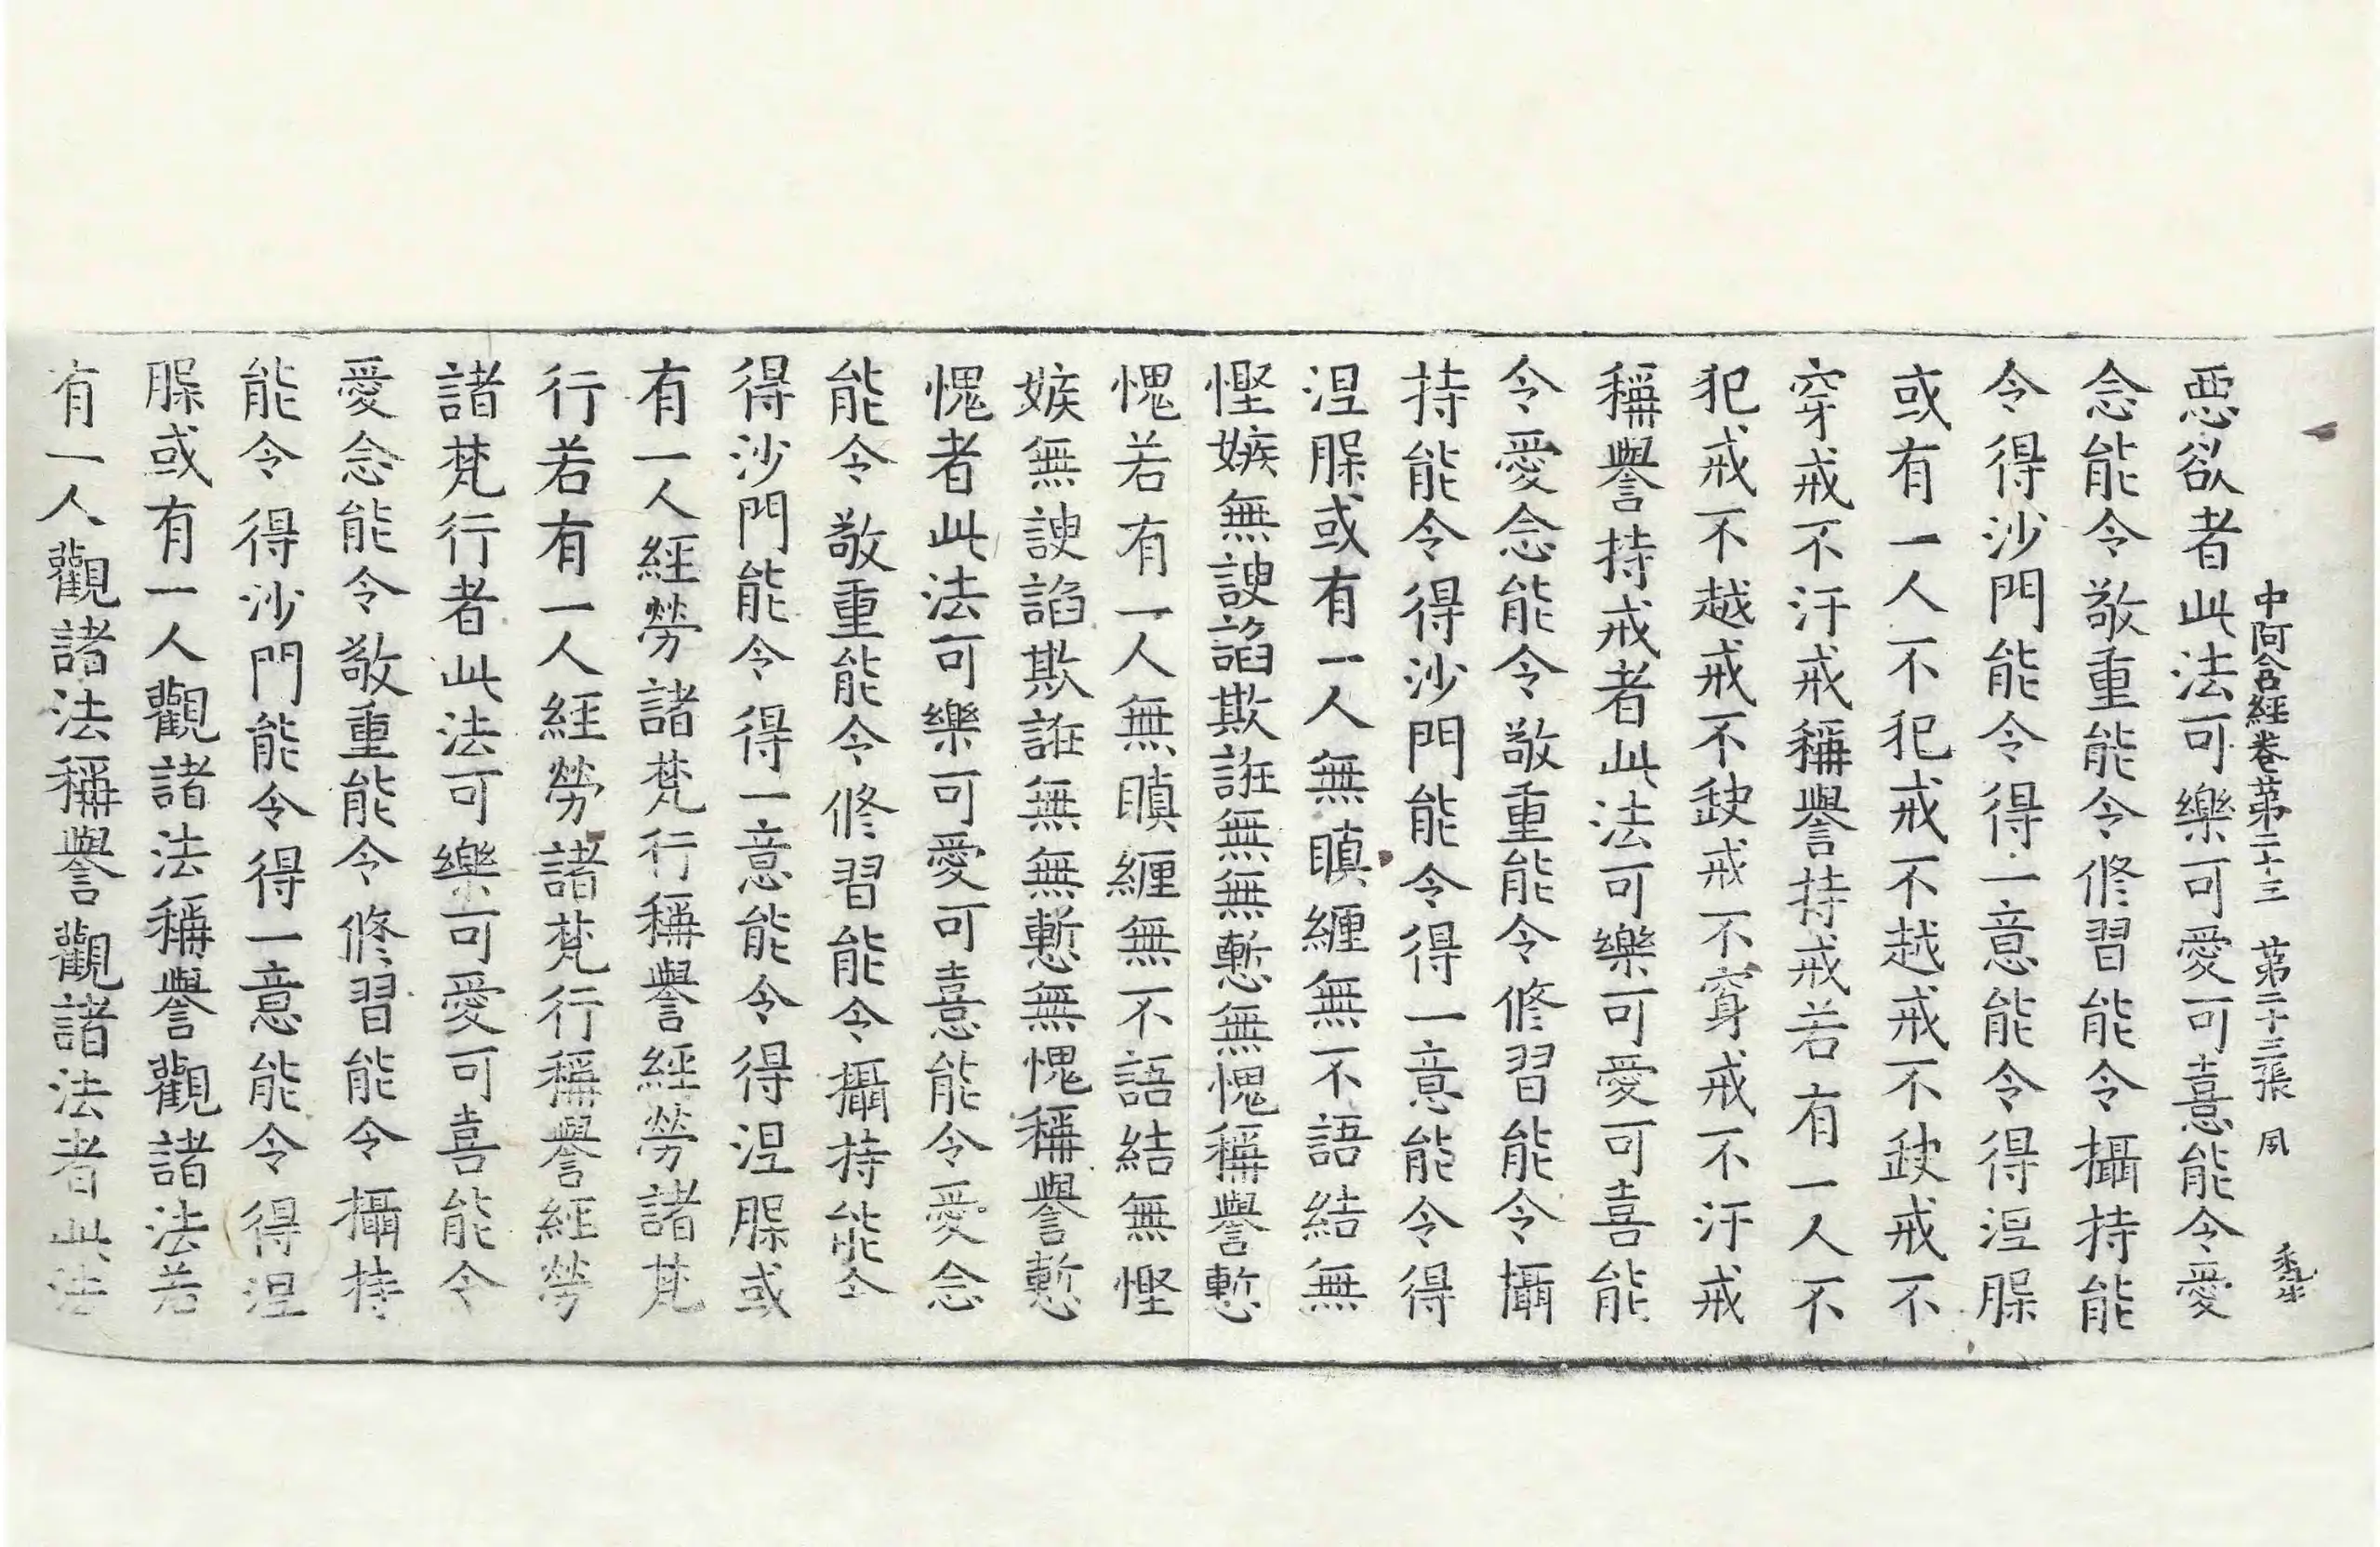 中阿含經卷第二十三 第二十三張 夙
惡欲者此法可樂可愛可憙能令愛
念能令敬重能令修習能令攝持能
令得沙門能令得一意能令得涅槃
或有一人不犯戒不越戒不缺戒不
穿戒不汙戒稱譽持戒若有一人不
犯戒不越戒不缺戒不穿戒不汙戒
稱譽持戒者此法可樂可愛可喜能
令愛念能令敬重能令修習能令攝
持能令得沙門能令得一意能令得
涅槃或有一人無瞋纏無不語結無
慳嫉無諛諂欺誑無無慙無愧稱譽慙
愧若有一人無瞋纏無不語結無慳
嫉無諛諂欺誑無無慙無愧稱譽慙
愧者此法可樂可愛可憙能令愛念
能令敬重能令修習能令攝持能令
得沙門能令得一意能令得涅槃或
有一人經勞諸梵行稱譽經勞諸梵
行若有一人經勞諸梵行稱譽經勞
諸梵行者此法可樂可愛可喜能令
愛念能令敬重能令修習能令攝持
能令得沙門能令得一意能令得涅
槃或有一人觀諸法稱譽觀諸法若
有一人觀諸法稱譽觀諸法者此法